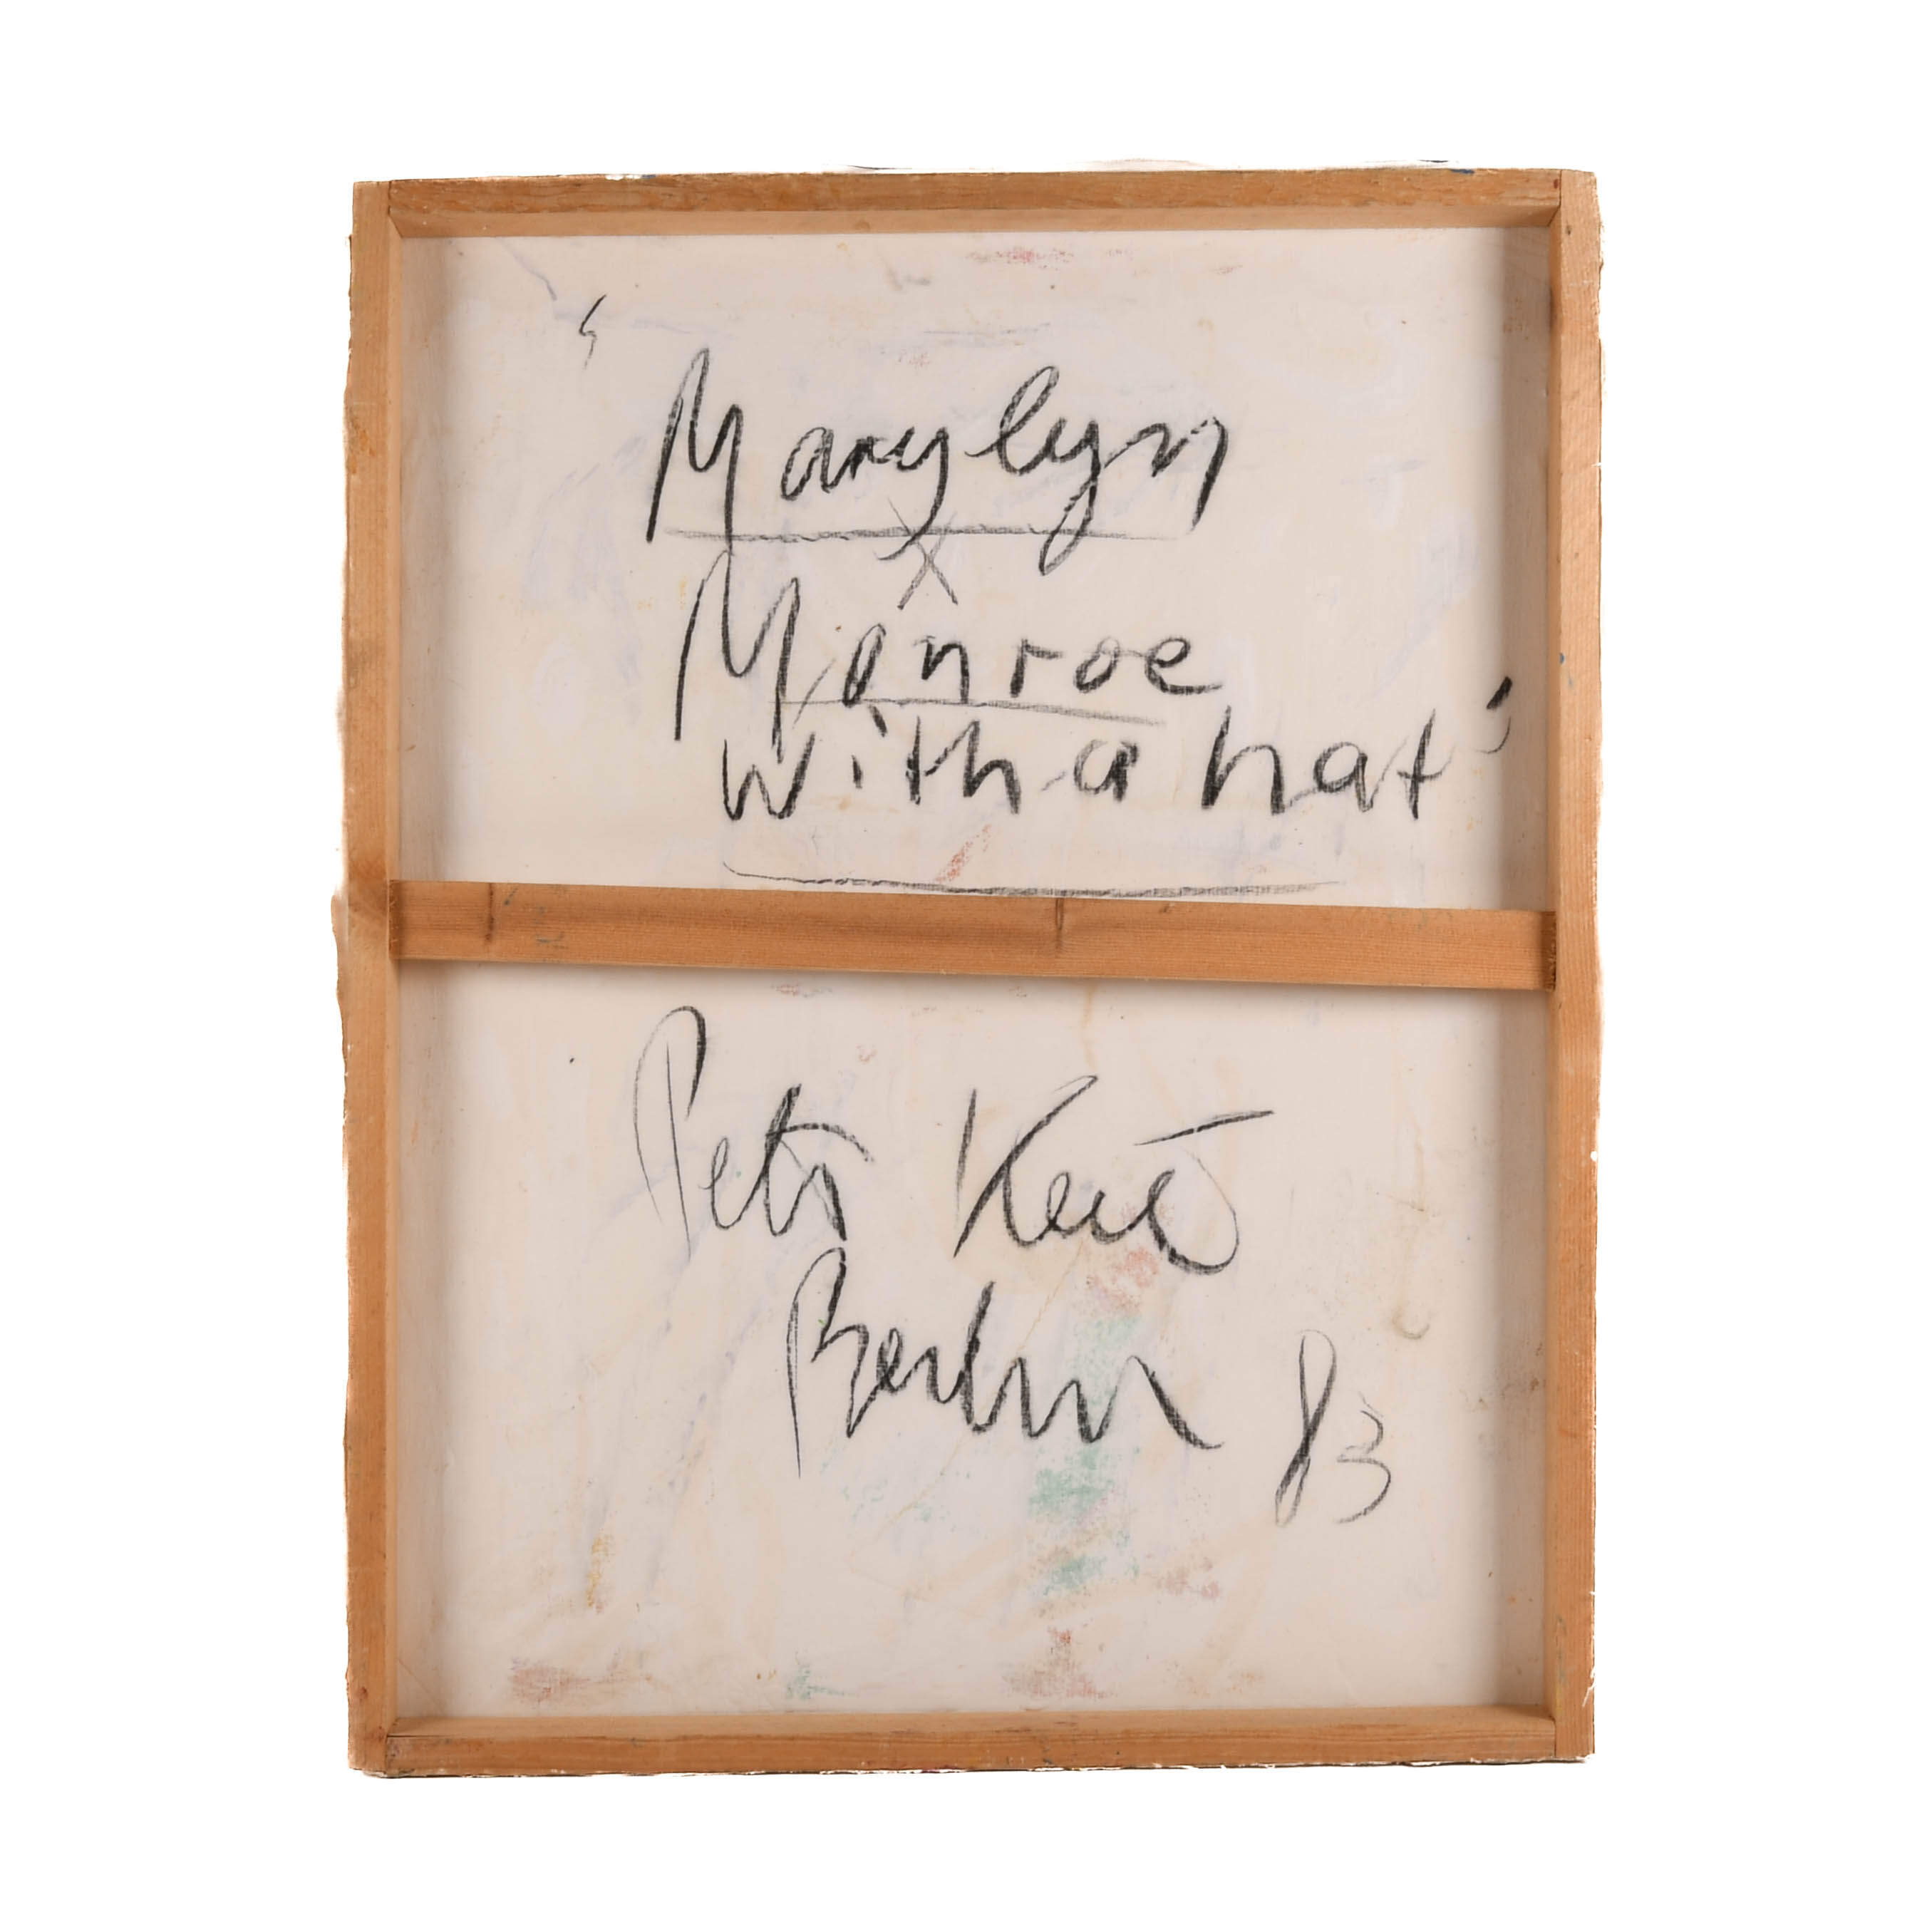 "Marylyn
Monroe
with a hat"
Peter Keil
Berlin 83